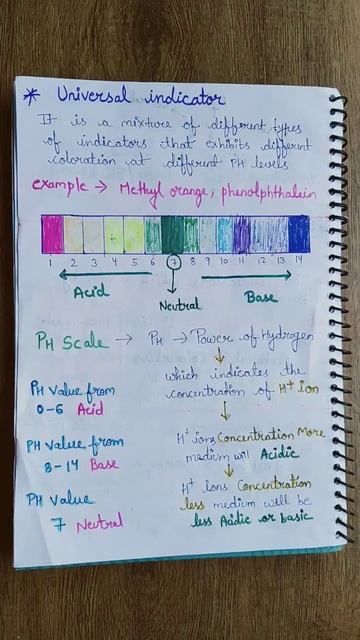 * Universal indicator
It is a mixture of different types
of indicators that exhibits different
coloration at different PH levels
example → Methyl orange, phenolphthalein
1 2 3 4 5 6 7 8 9 10 11 12 13 14
Acid
Neutral
Base
PH Scale → PH → Power of Hydrogen
which indicates the
concentration of H+ Ion
PH Value from
0-6 Acid
H+ ions Concentration More
medium will Acidic
PH Value from
8-14 Base
H+ Ions Concentration
less medium will be
less Acidic or basic
PH Value
7 Neutral